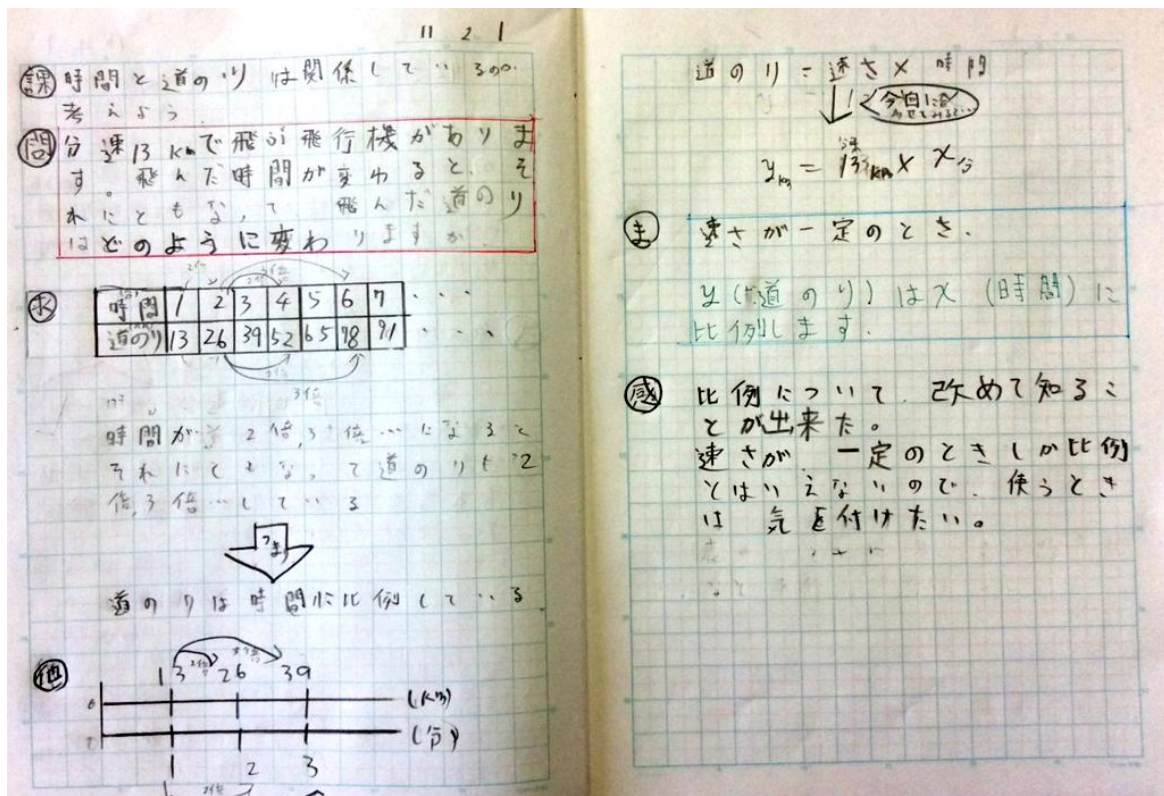 11 2 1
課 時間と道のりは関係しているのか
考えよう。
問 分速13kmで飛ぶ飛行機がありま
す。飛んだ時間が変わると、そ
れにともなって、飛んだ道のり
はどのように変わりますか。
2倍 3倍
2倍
求 時間 1 2 3 4 5 6 7 ・・・
道のり 13 26 39 52 65 78 91 ・・・
3倍
時間が 2倍,3倍…になると
それにともなって道のりも2
倍,3倍…している
つまり
道のりは時間に比例している
他 13 2倍 26 39
0 (km)
(分)
1 2 3
2倍
道のり=速さ×時間
今回に
y km = 分速13km × x分
ま 速さが一定のとき、
y(道のり)はx(時間)に
比例します。
感 比例について、改めて知るこ
とが出来た。
速さが、一定のときしか比例
とはいえないので、使うとき
は気を付けたい。